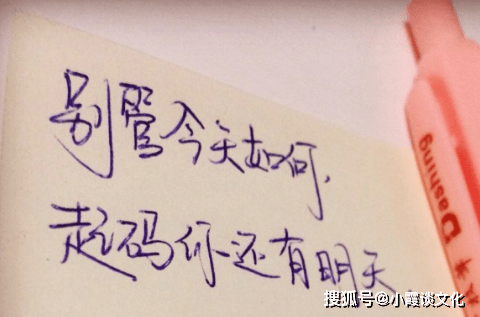 别管今天如何,
起码你还有明天
Dashing
搜狐号@小霞谈文化